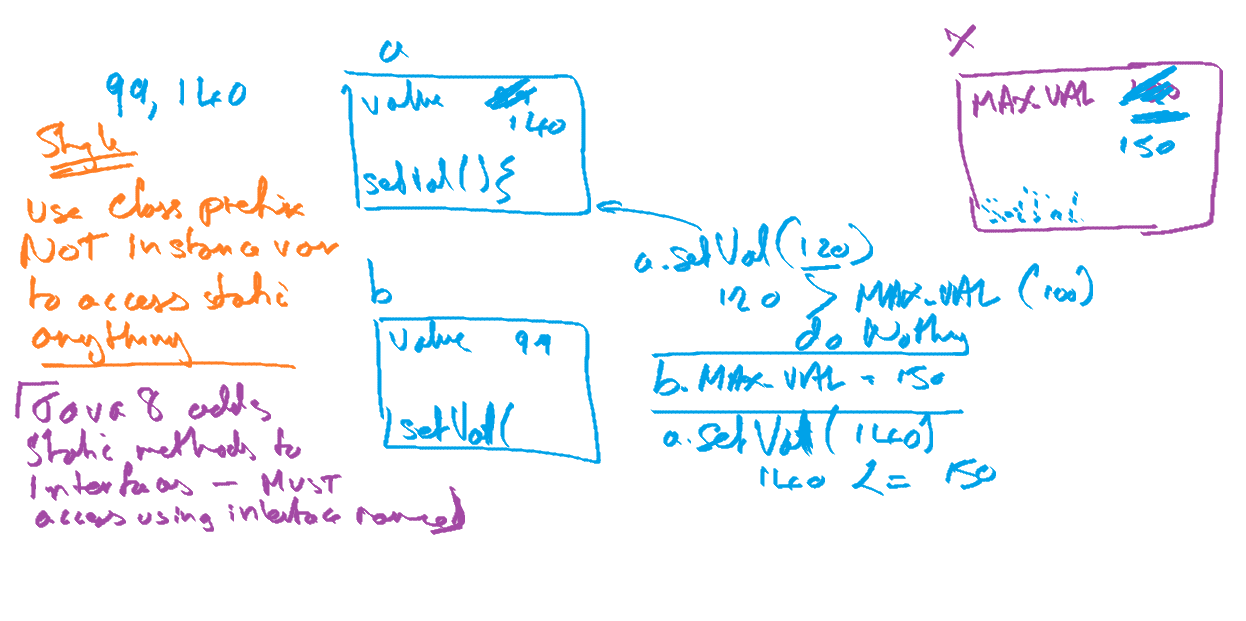 99, 140
Style
use class prefix
NOT instance var
to access static
anything
Java 8 adds
static methods to
Interfaces - MUST
access using interface name
a
value
140
setVal(){
b
value 99
setVal(
X
MAX_VAL
150
a.setVal(120)
120 > MAX_VAL (100)
do Nothing
b.MAX_VAL = 150
a.setVal(140)
140 <= 150